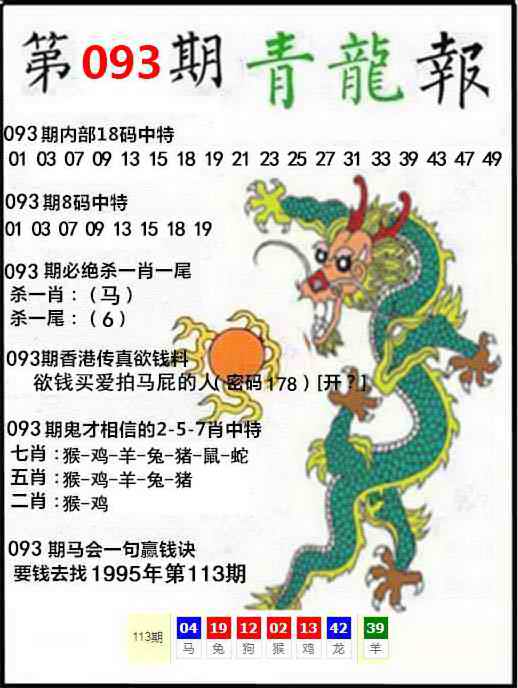 第093期青龍報
093期内部18码中特
01 03 07 09 13 15 18 19 21 23 25 27 31 33 39 43 47 49
093期8码中特
01 03 07 09 13 15 18 19
093 期必绝杀一肖一尾
杀一肖：（马）
杀一尾：（6）
093期香港传真欲钱料
欲钱买爱拍马屁的人（密码178）[开？]
093期鬼才相信的2-5-7肖中特
七肖：猴-鸡-羊-兔-猪-鼠-蛇
五肖：猴-鸡-羊-兔-猪
二肖：猴-鸡
093 期马会一句赢钱诀
要钱去找1995年第113期
113期 04 19 12 02 13 42 39
马 兔 狗 猴 鸡 龙 羊